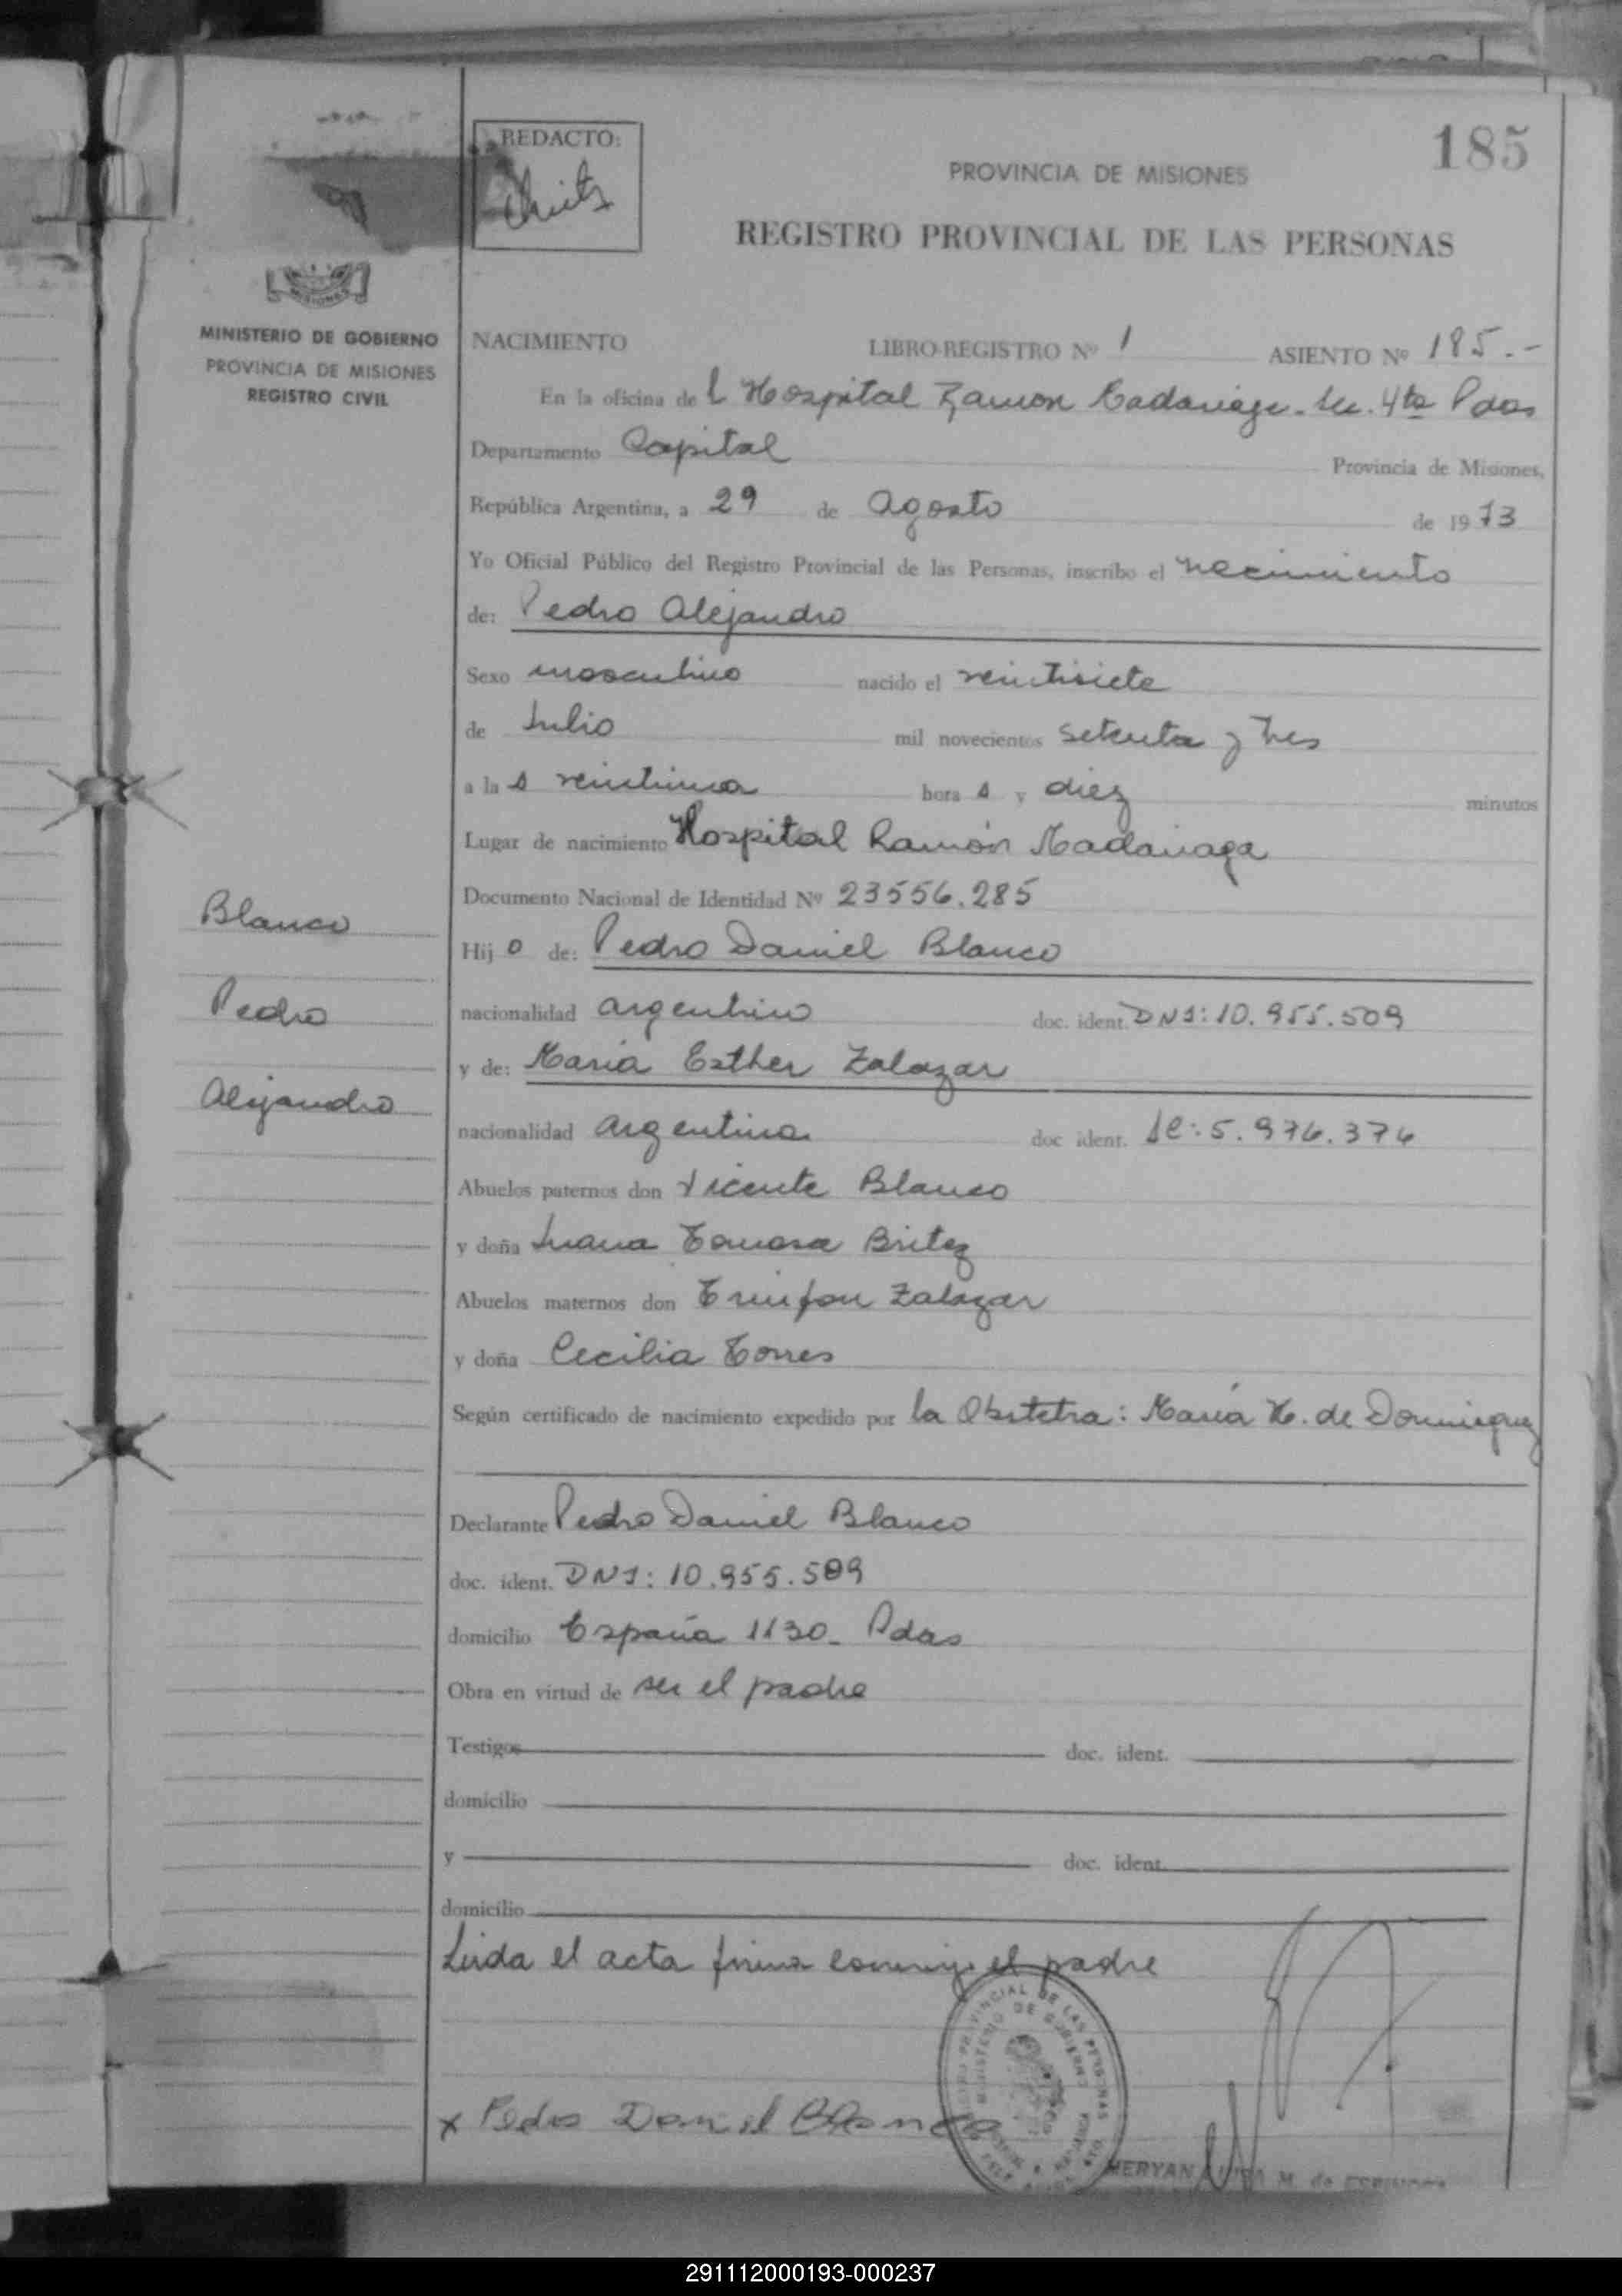 185
REDACTO:
PROVINCIA DE MISIONES
REGISTRO PROVINCIAL DE LAS PERSONAS
MISIONES
MINISTERIO DE GOBIERNO
PROVINCIA DE MISIONES
REGISTRO CIVIL
NACIMIENTO LIBRO-REGISTRO Nº 1 ASIENTO Nº 185.-
En la oficina de l Hospital Ramon Madariaga - Sec. 4ta Pdas
Departamento Capital Provincia de Misiones,
República Argentina, a 29 de Agosto de 1973
Yo Oficial Público del Registro Provincial de las Personas, inscribo el nacimiento
de: Pedro Alejandro
Sexo masculino nacido el veintisiete
de Julio mil novecientos setenta y tres
a la s veintiuna hora s y diez minutos
Lugar de nacimiento Hospital Ramón Madariaga
Documento Nacional de Identidad Nº 23556.285
Blanco
Hij o de: Pedro Daniel Blanco
Pedro
nacionalidad argentino doc. ident. DNI: 10.955.509
y de: Maria Esther Zalazar
Alejandro
nacionalidad argentina doc ident. LC: 5.976.376
Abuelos paternos don Vicente Blanco
y doña Juana Tomasa Britez
Abuelos maternos don Zalazar
y doña Cecilia Torres
Según certificado de nacimiento expedido por la Obstetra: María H. de Dominguez
Declarante Pedro Daniel Blanco
doc. ident. DNI: 10.955.509
domicilio España 1130 - Pdas
Obra en virtud de ser el padre
Testigos doc. ident.
domicilio
y doc. ident.
domicilio
Leida el acta firma conmigo el padre
x Pedro Daniel Blanco
REGISTRO PROVINCIAL DE LAS PERSONAS
MINISTERIO DE GOBIERNO
MERYAN M. de
291112000193-000237